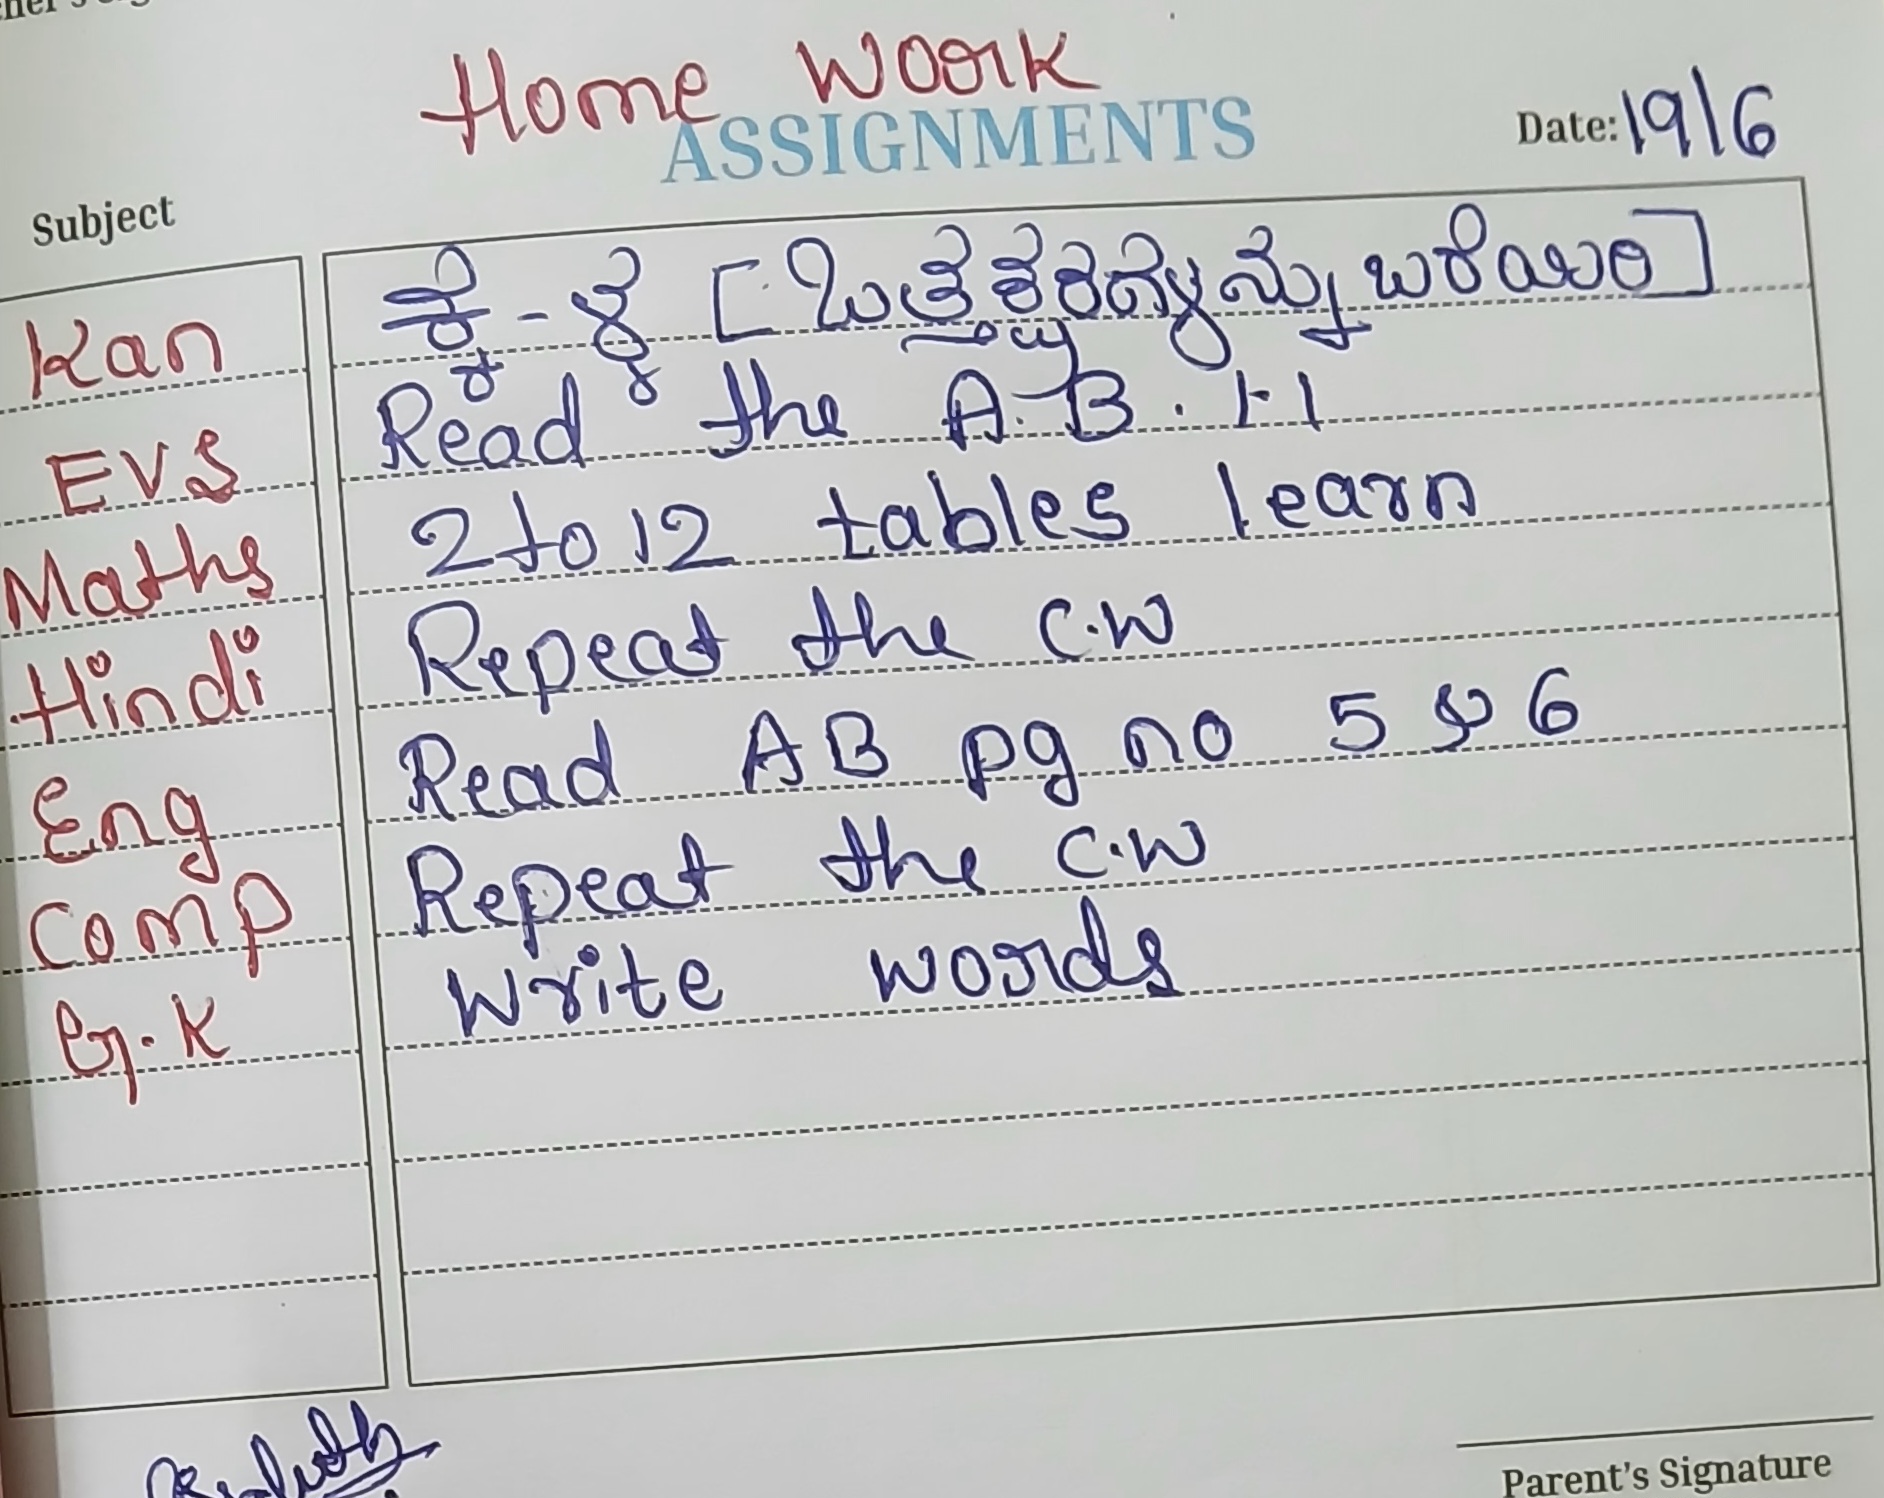 Home Work
ASSIGNMENTS
Date: 19/6
Subject
Kan ಕ್ಕ - ಳ್ಳ [ಒತ್ತಕ್ಷರಗಳನ್ನು ಬರೆಯಿರಿ]
EVS Read the A.B. 1-1
Maths 2 to 12 tables learn
Hindi Repeat the C.W
Eng Read AB pg no 5 & 6
Comp Repeat the C.W
G.K Write words
Parent's Signature